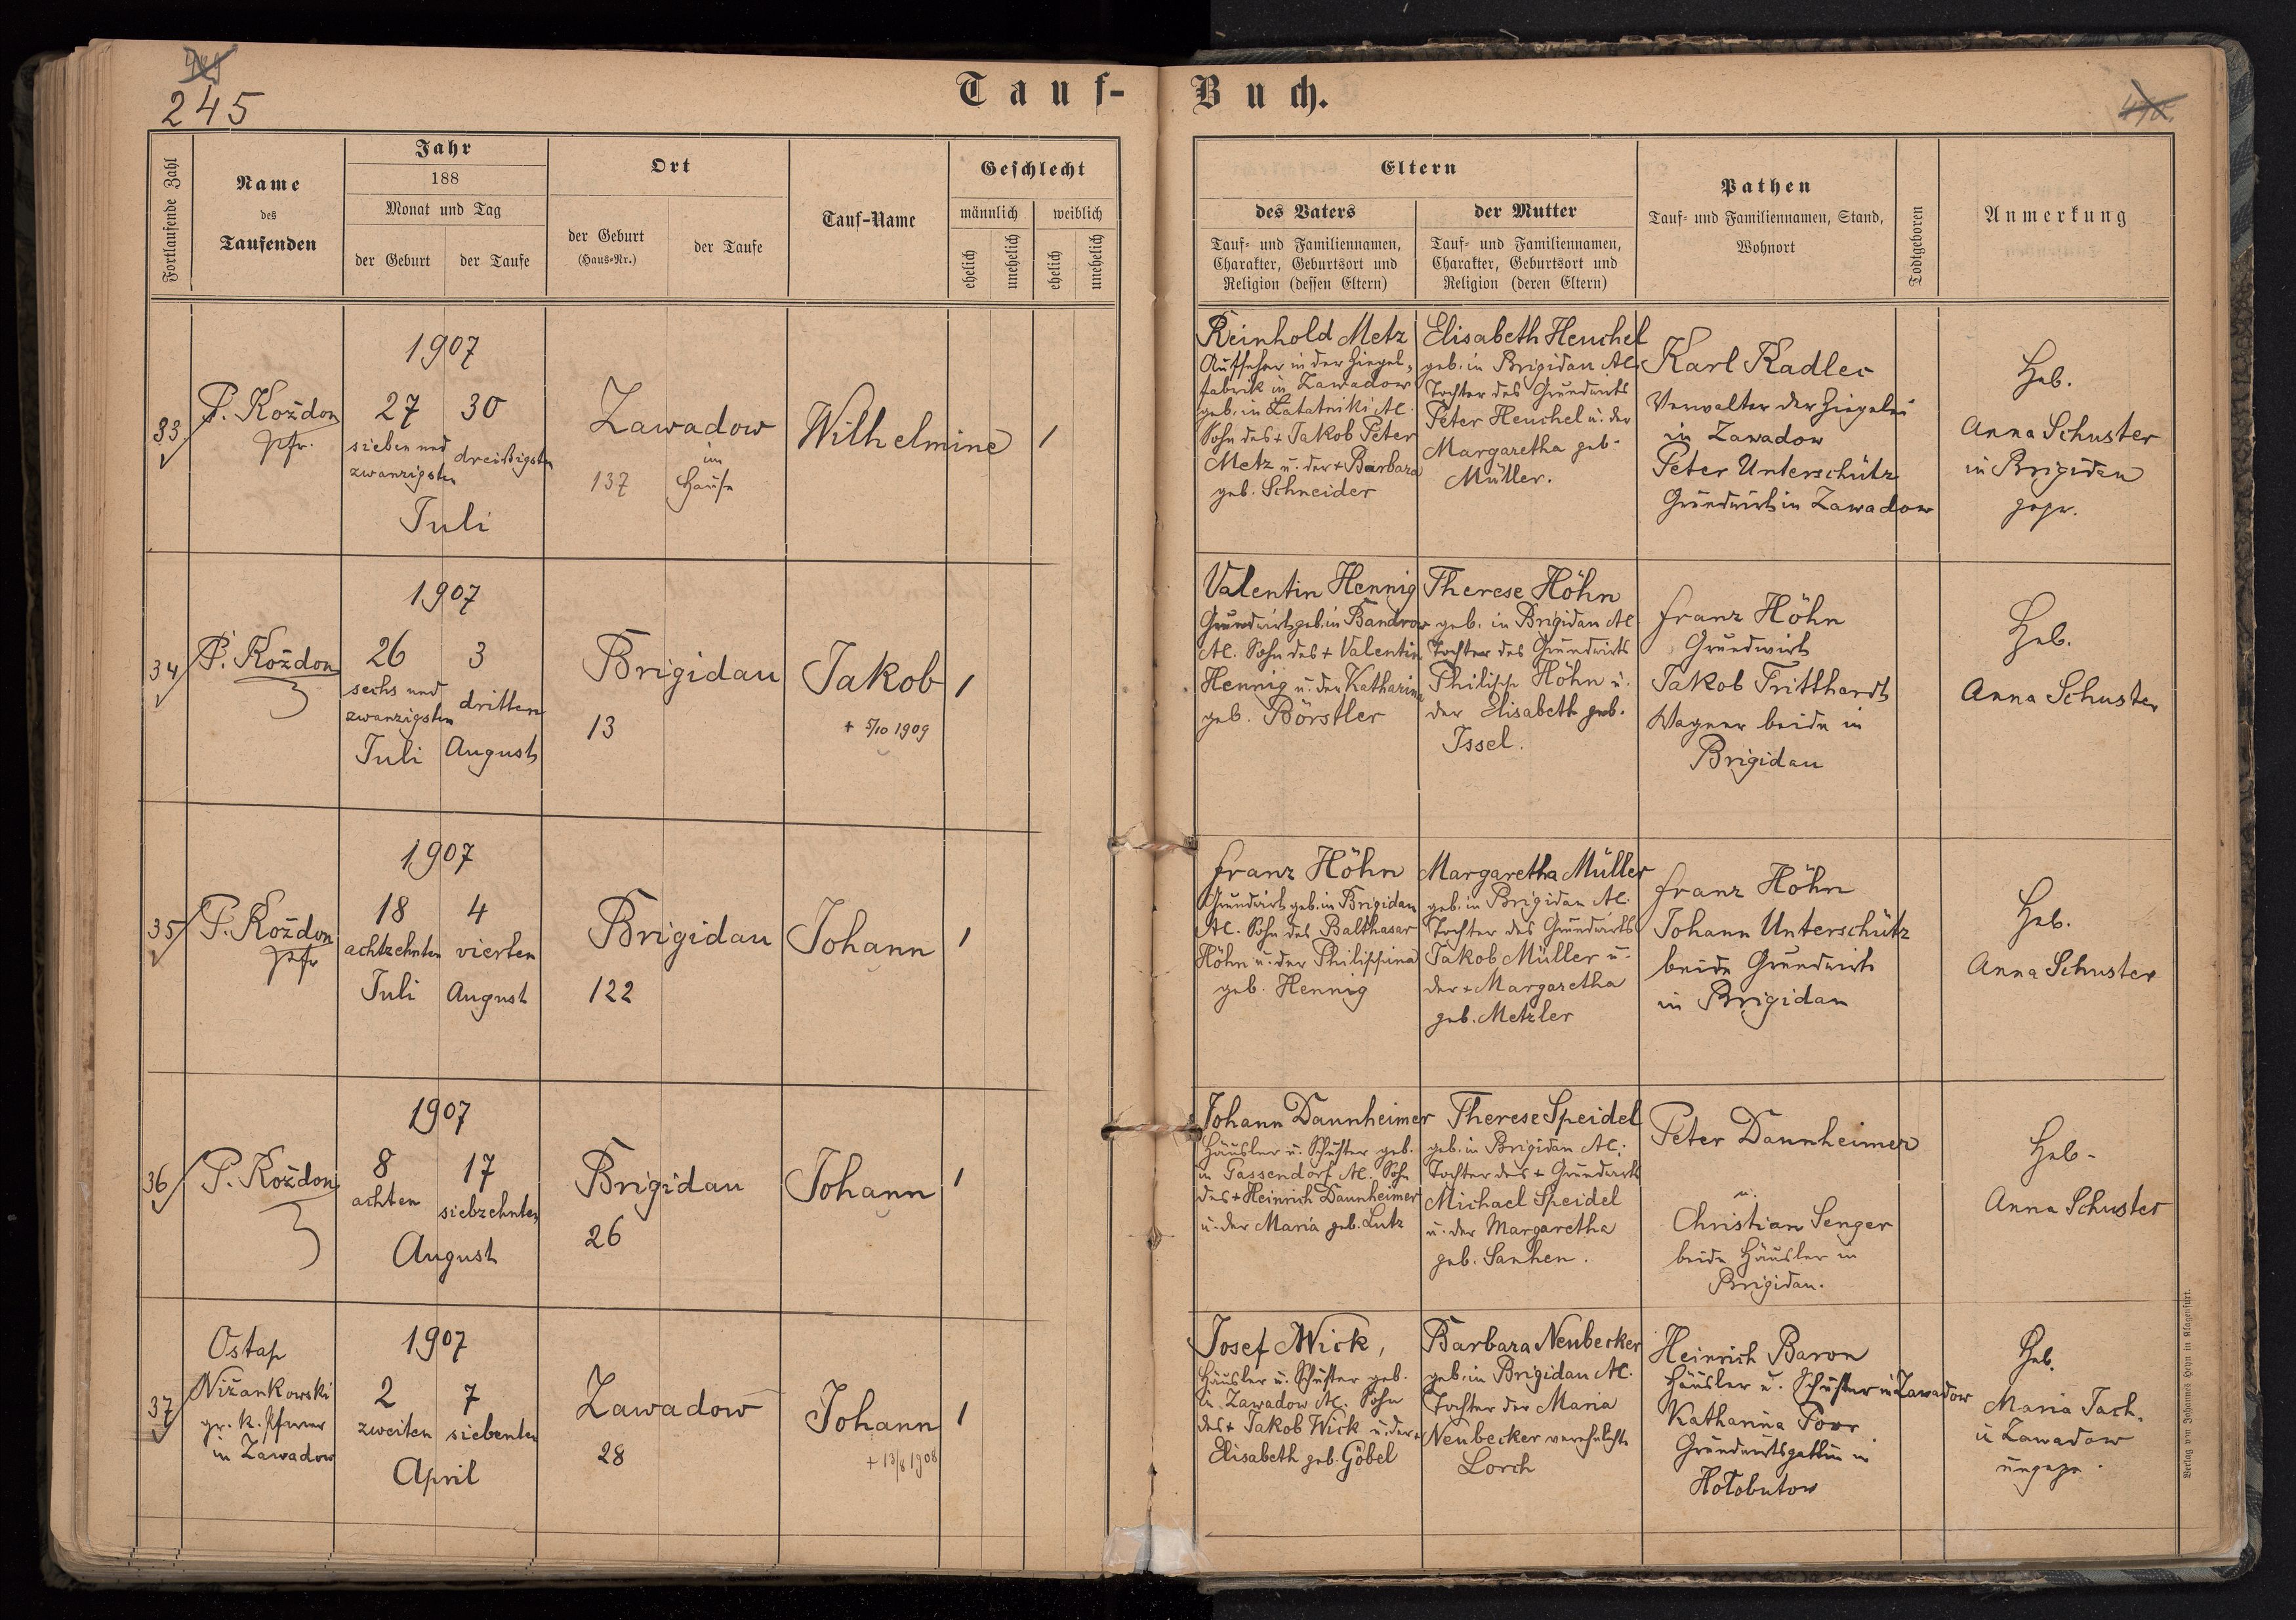 245
Tauf-Buch.
Fortlaufende Zahl
Name
des
Taufenden
Jahr
188
Monat und Tag
der Geburt
der Taufe
Ort
der Geburt
(Haus-Nr.)
der Taufe
Tauf-Name
Geschlecht
männlich
weiblich
ehelich
unehelich
ehelich
unehelich
Eltern
des Vaters
Tauf- und Familiennamen,
Charakter, Geburtsort und
Religion (dessen Eltern)
der Mutter
Tauf- und Familiennamen,
Charakter, Geburtsort und
Religion (deren Eltern)
Pathen
Tauf- und Familiennamen, Stand,
Wohnort
Todtgeboren
Anmerkung
33
P. Koždon
Pfr.
1907
27 30
sieben und dreißigsten
zwanzigsten
Juli
Zawadow
im
137 Hause
Wilhelmine
1
Reinhold Metz
Aufseher in der Ziegel-
fabrik in Zawadow
geb. in AC.
Sohn des + Jakob Peter
Metz u. der + Barbara
geb. Schneider
Elisabeth Heuchel
geb. in Brigidau AC
Tochter des Grundwirts
Peter Heuchel u. der
Margaretha geb.
Müller.
Karl Radler
Verwalter der Ziegelei
in Zawadow
Peter Unterschütz
Grundwirt in Zawadow
Heb.
Anna Schuster
in Brigidau
gepr.
34
P. Koždon
1907
26 3
sechs und dritten
zwanzigsten
Juli August
Brigidau
13
Jakob
+ 5/10 1909
1
Valentin Hennig
Grundwirt geb. in Bandrow
AC. Sohn des + Valentin
Hennig u. der Katharina
geb. Börstler
Therese Höhn
geb. in Brigidau AC
Tochter des Grundwirts
Philipp Höhn u.
der Elisabeth geb.
Issel.
Franz Höhn
Grundwirt
Jakob Tritthardt
Wagner beide in
Brigidau
Heb.
Anna Schuster
35
P. Koždon
Pfr
1907
18 4
achtzehnten vierten
Juli August
Brigidau
122
Johann
1
Franz Höhn
Grundwirt geb. in Brigidau
AC. Sohn des Balthasar
Höhn u. der Philippina
geb. Hennig
Margaretha Müller
geb. in Brigidau AC.
Tochter des Grundwirts
Jakob Müller u.
der + Margaretha
geb. Metzler
Franz Höhn
Johann Unterschütz
beide Grundwirte
in Brigidau
Heb.
Anna Schuster
36
P. Koždon
1907
8 17
achten siebzehnten
August
Brigidau
26
Johann
1
Johann Dannheimer
Häusler u. Schuster geb.
in Gassendorf AC. Sohn
des + Heinrich Dannheimer
u. der Maria geb. Lutz
Therese Speidel
geb. in Brigidau AC.
Tochter des + Grundwirts
Michael Speidel
u. der Margaretha
geb.
Peter Dannheimer
u.
Christian Senger
beide Häusler in
Brigidau.
Heb.
Anna Schuster
37
Ostap
Nižankowski
gr. k. Pfarrer
in Zawadow
1907
2 7
zweiten siebenten
April
Zawadow
28
Johann
+ 13/8 1908
1
Josef Wick,
Häusler u. Schuster geb.
in Zawadow AC. Sohn
des + Jakob Wick u. der +
Elisabeth geb. Göbel
Barbara Neubecker
geb. in Brigidau AC.
Tochter der Maria
Neubecker verehelichte
Lorch
Heinrich Baron
Häusler u. Schuster in Zawadow
Katharina
Grundwirtsgattin in
Hołobutow
Heb.
Maria
in Zawadow
ungepr.
Verlag von Johannes Heyn in Klagenfurt.